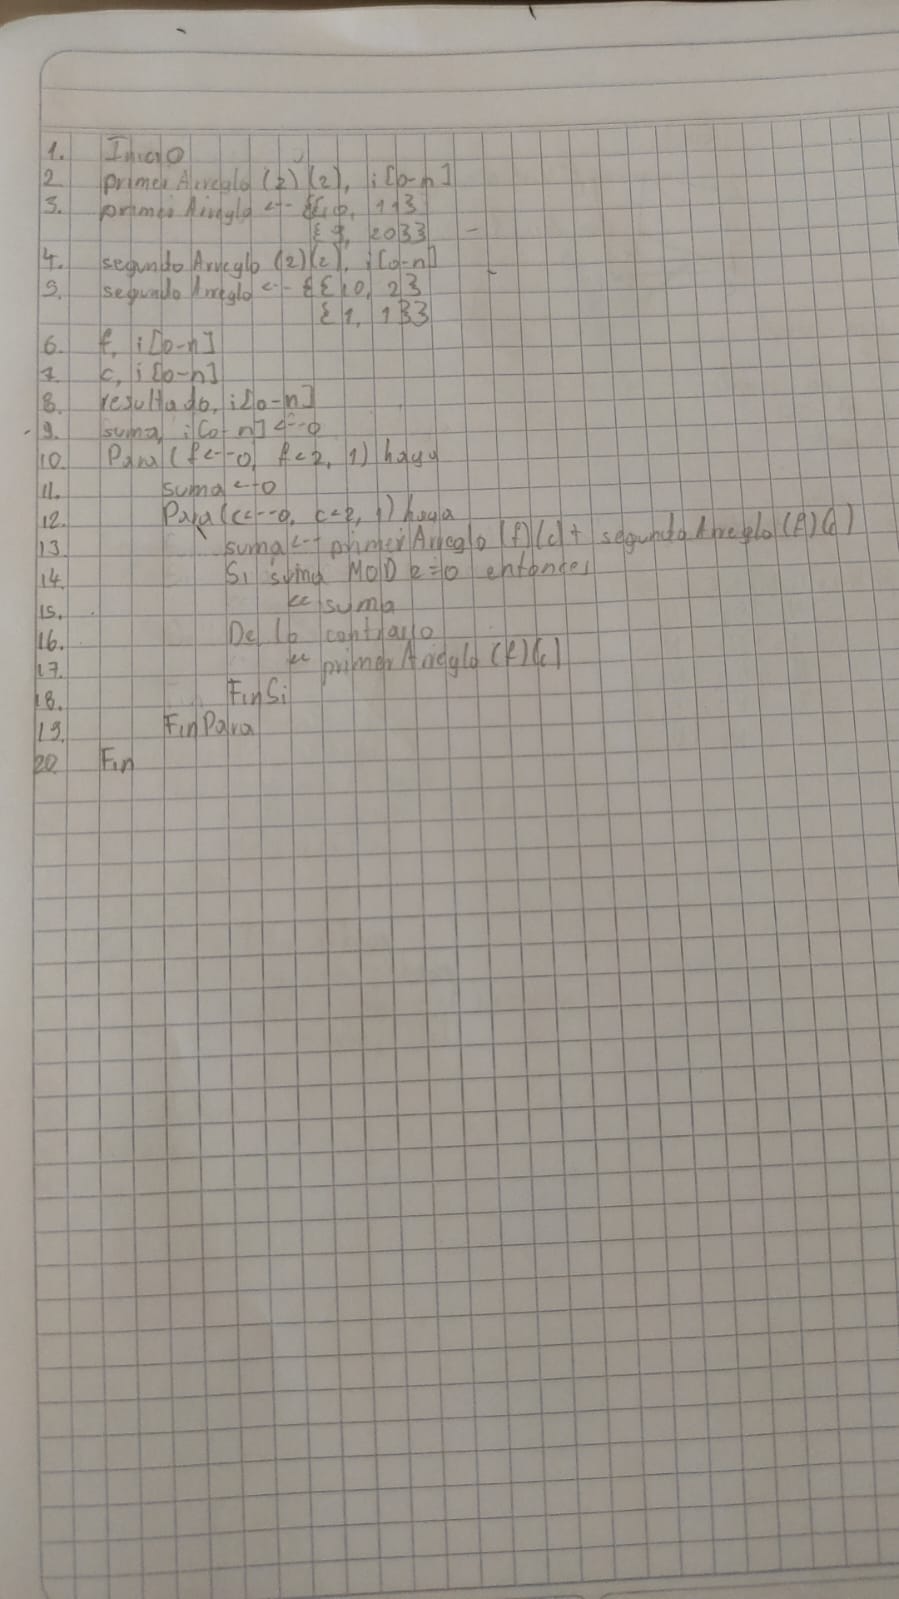 1. Inicio
2 primer Arreglo (2)(2), i[0-n]
3. primer Arreglo <-- {{10, 11}
{9, 20}}
4. segundo Arreglo (2)(2), i[0-n]
5. segundo Arreglo <-- {{10, 2}
{1, 13}}
6. f, i[0-n]
7. c, i[0-n]
8. resultado, i[0-n]
9. suma, i[0-n] <--0
10. Para (f<--0, f<2, 1) haga
11. suma <-0
12. Para (c<--0, c<2, 1) haga
13 suma <-- primer Arreglo (f)(c) + segundo Arreglo (f)(c)
14 Si suma MOD 2=0 entonces
15. << suma
16. De lo contrario
17. << primer Arreglo (f)(c)
18. FinSi
19. FinPara
20 Fin